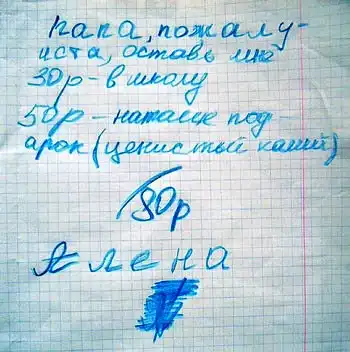 папа, пожалу-
иста, оставь мне
30р - в школу
50р - наташе под-
арок (ценистый камий)
80р
Алена